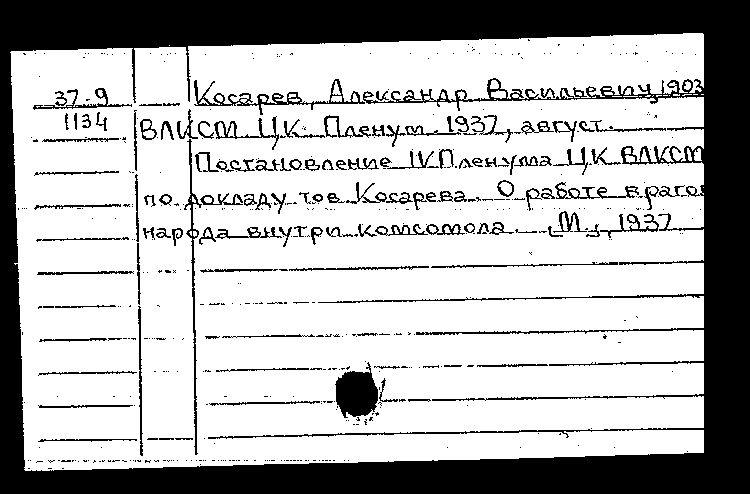 37-9 Косарев, Александр Васильевич, 1903
1134 ВЛКСМ. ЦК. Пленум. 1937, август.
Постановление IV Пленума ЦК ВЛКСМ
по докладу тов. Косарева. О работе врагов
народа внутри комсомола. [М.], 1937